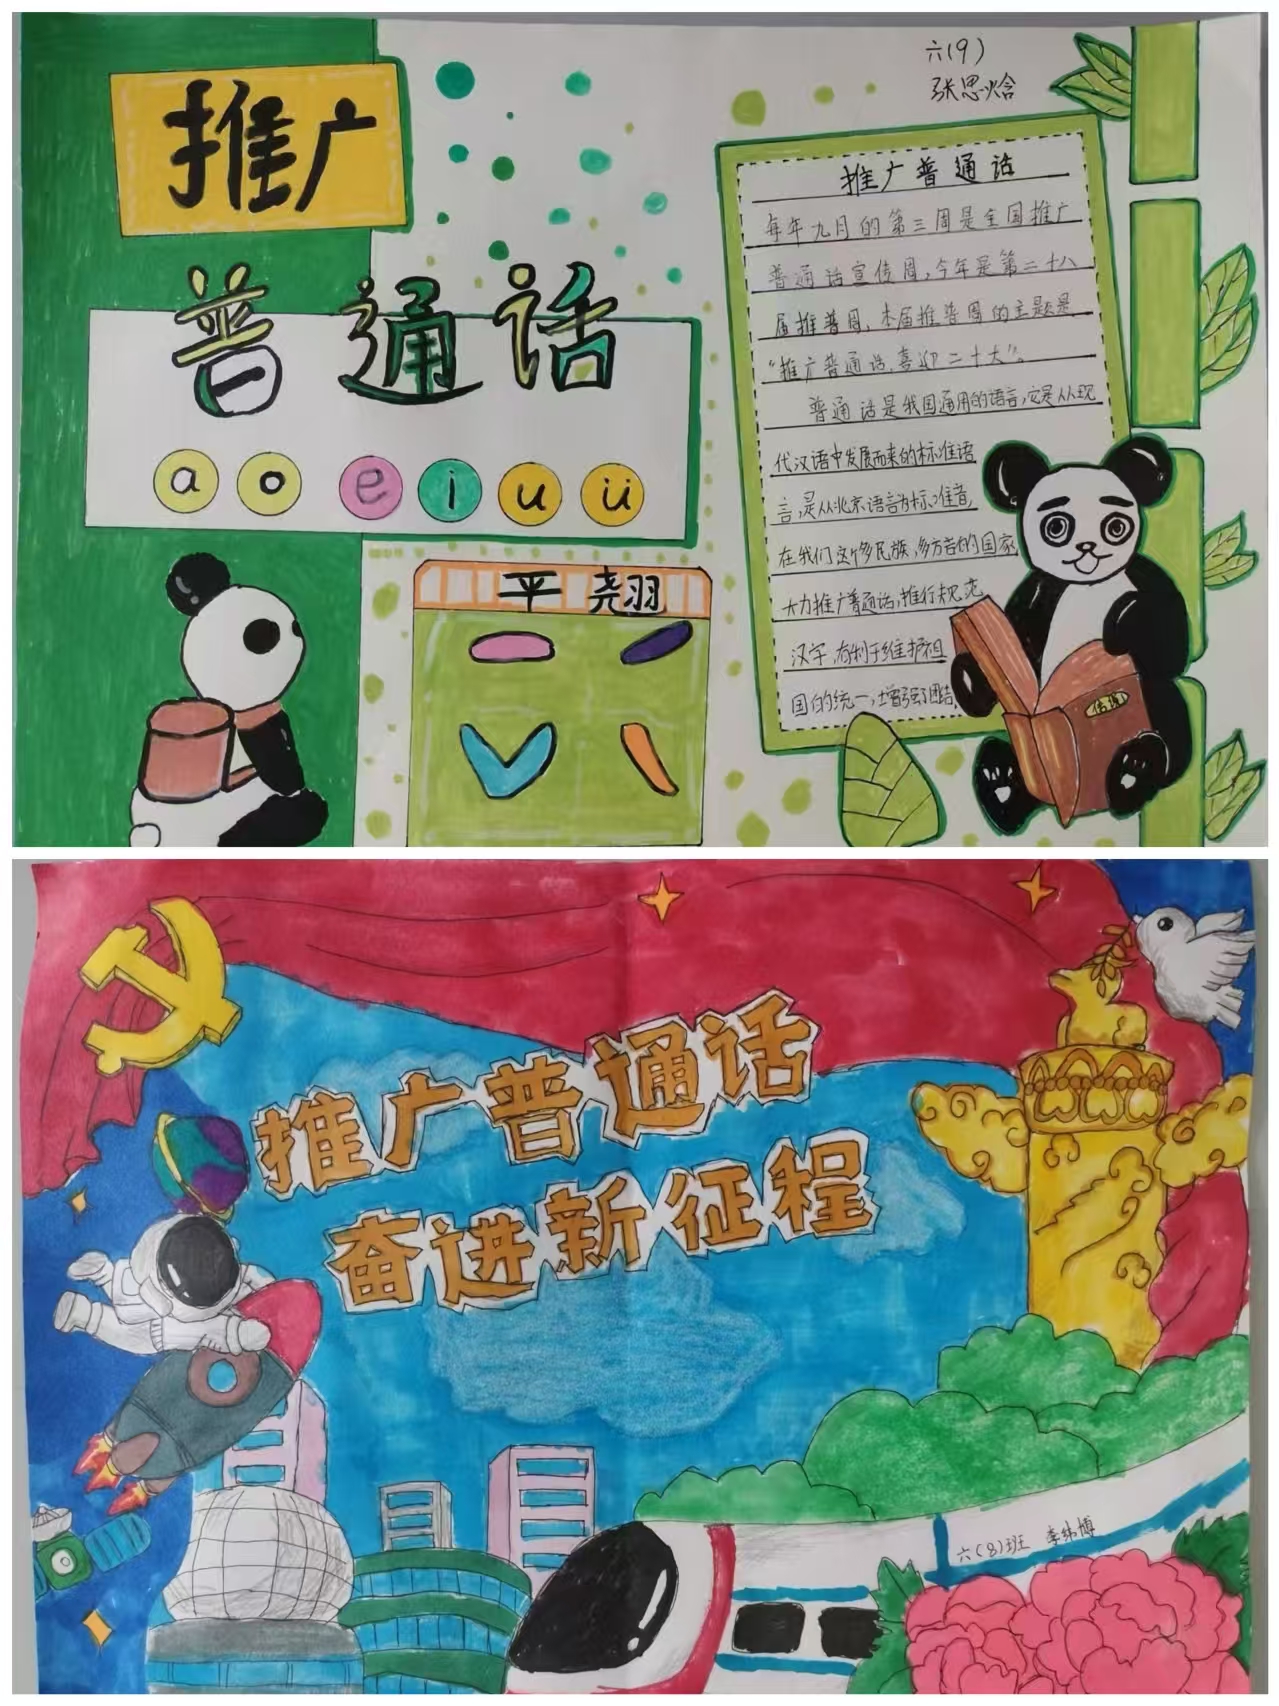 推广
普通话
a o e i u ü
平 翘
六(9)
张思焓
推广普通话
每年九月的第三周是全国推广
普通话宣传周,今年是第二十八
届推普周,本届推普周的主题是
“推广普通话,喜迎二十大”。
普通话是我国通用的语言,它是从现
代汉语中发展而来的标准语
言,是从北京语言为标准音,
在我们这个多民族,多方言的国家
大力推广普通话,推行规范
汉字,有利于维护祖
国的统一,增强团结,
推广普通话
奋进新征程
六(8)班 李纬博